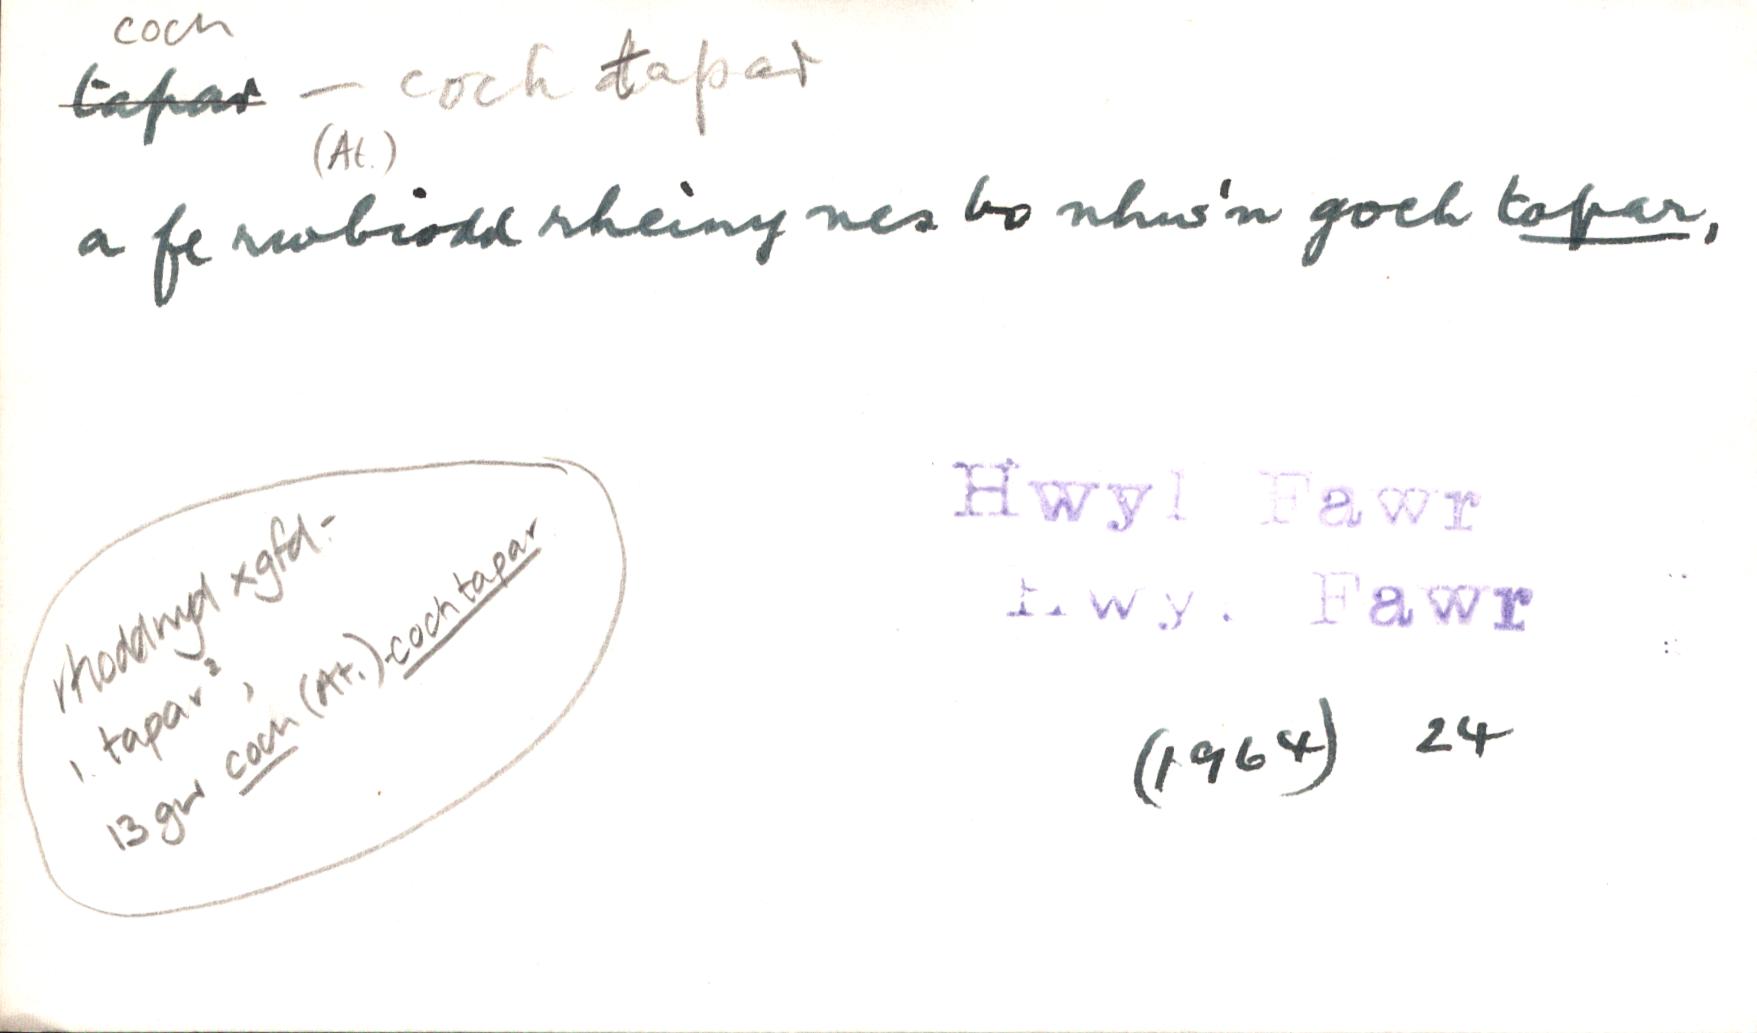 coch
tapar — coch tapar
(At.)
a fe rwbiodd rheiny nes bo nhw'n goch tapar,
Hwyl Fawr
Hwy. Fawr
(1964) 24
rhoddwyd xgfd:-
1. tapar²,
13 gw coch (At.)-coch tapar